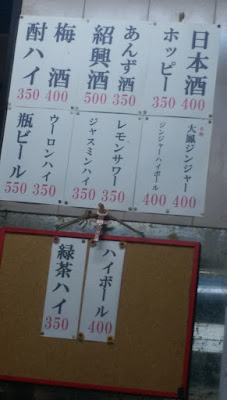 日本酒
400
ホッピー
350
あんず酒
350
紹興酒
500
梅酒
400
酎ハイ
350
大鳳ジンジャー
400
ジンジャーハイボール
400
レモンサワー
350
ジャスミンハイ
350
ウーロンハイ
350
瓶ビール
550
ハイボール
400
緑茶ハイ
350